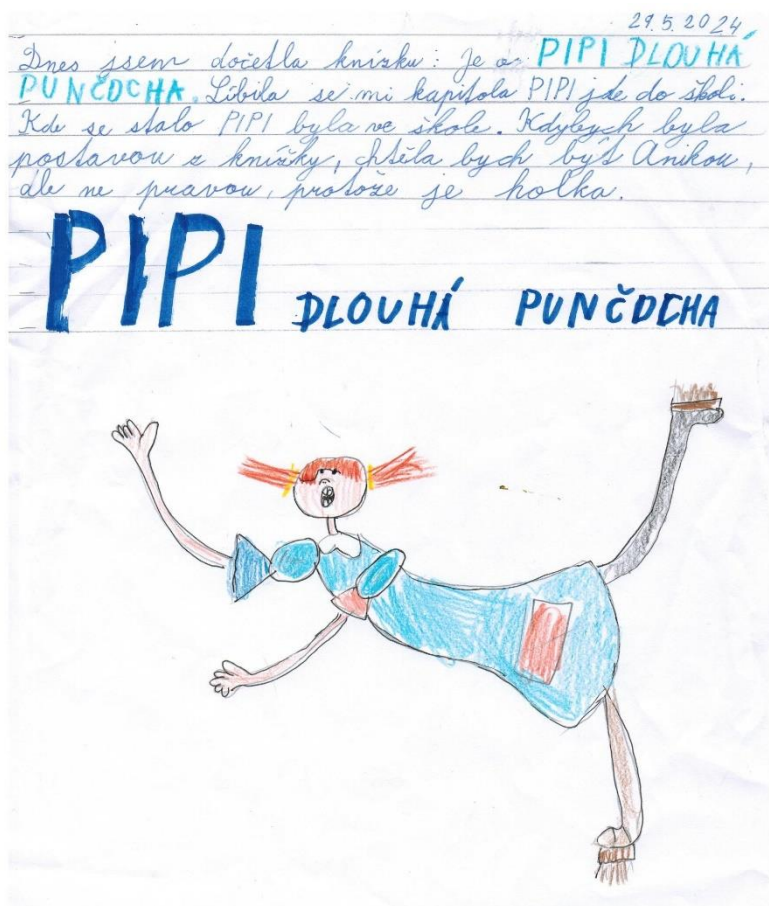 29.5.2024
Dnes jsem dočetla knížku: Je o: PIPI DLOUHÁ
PUNČOCHA. Líbila se mi kapitola PIPI jde do školi.
Kde se stalo PIPI byla ve škole. Kdybych byla
postavou z knížky, chtěla bych být Anikou,
ale ne pravou, protože je holka.
PIPI DLOUHÁ PUNČOCHA